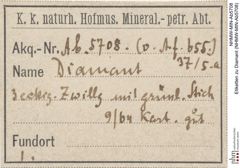 K. k. naturh. Hofmus. Mineral.-petr. Abt.
Akq.-Nr. Ab. 5708. (v. Af. 655.)
Name Diamant 37/5.a
3eckig. Zwillg mit grünl. Stich
9/64 Kart. gut
Fundort
Etiketten zu Diamant (NHMW-MIN-Ab5708)
NHMW-MIN-Ab5708